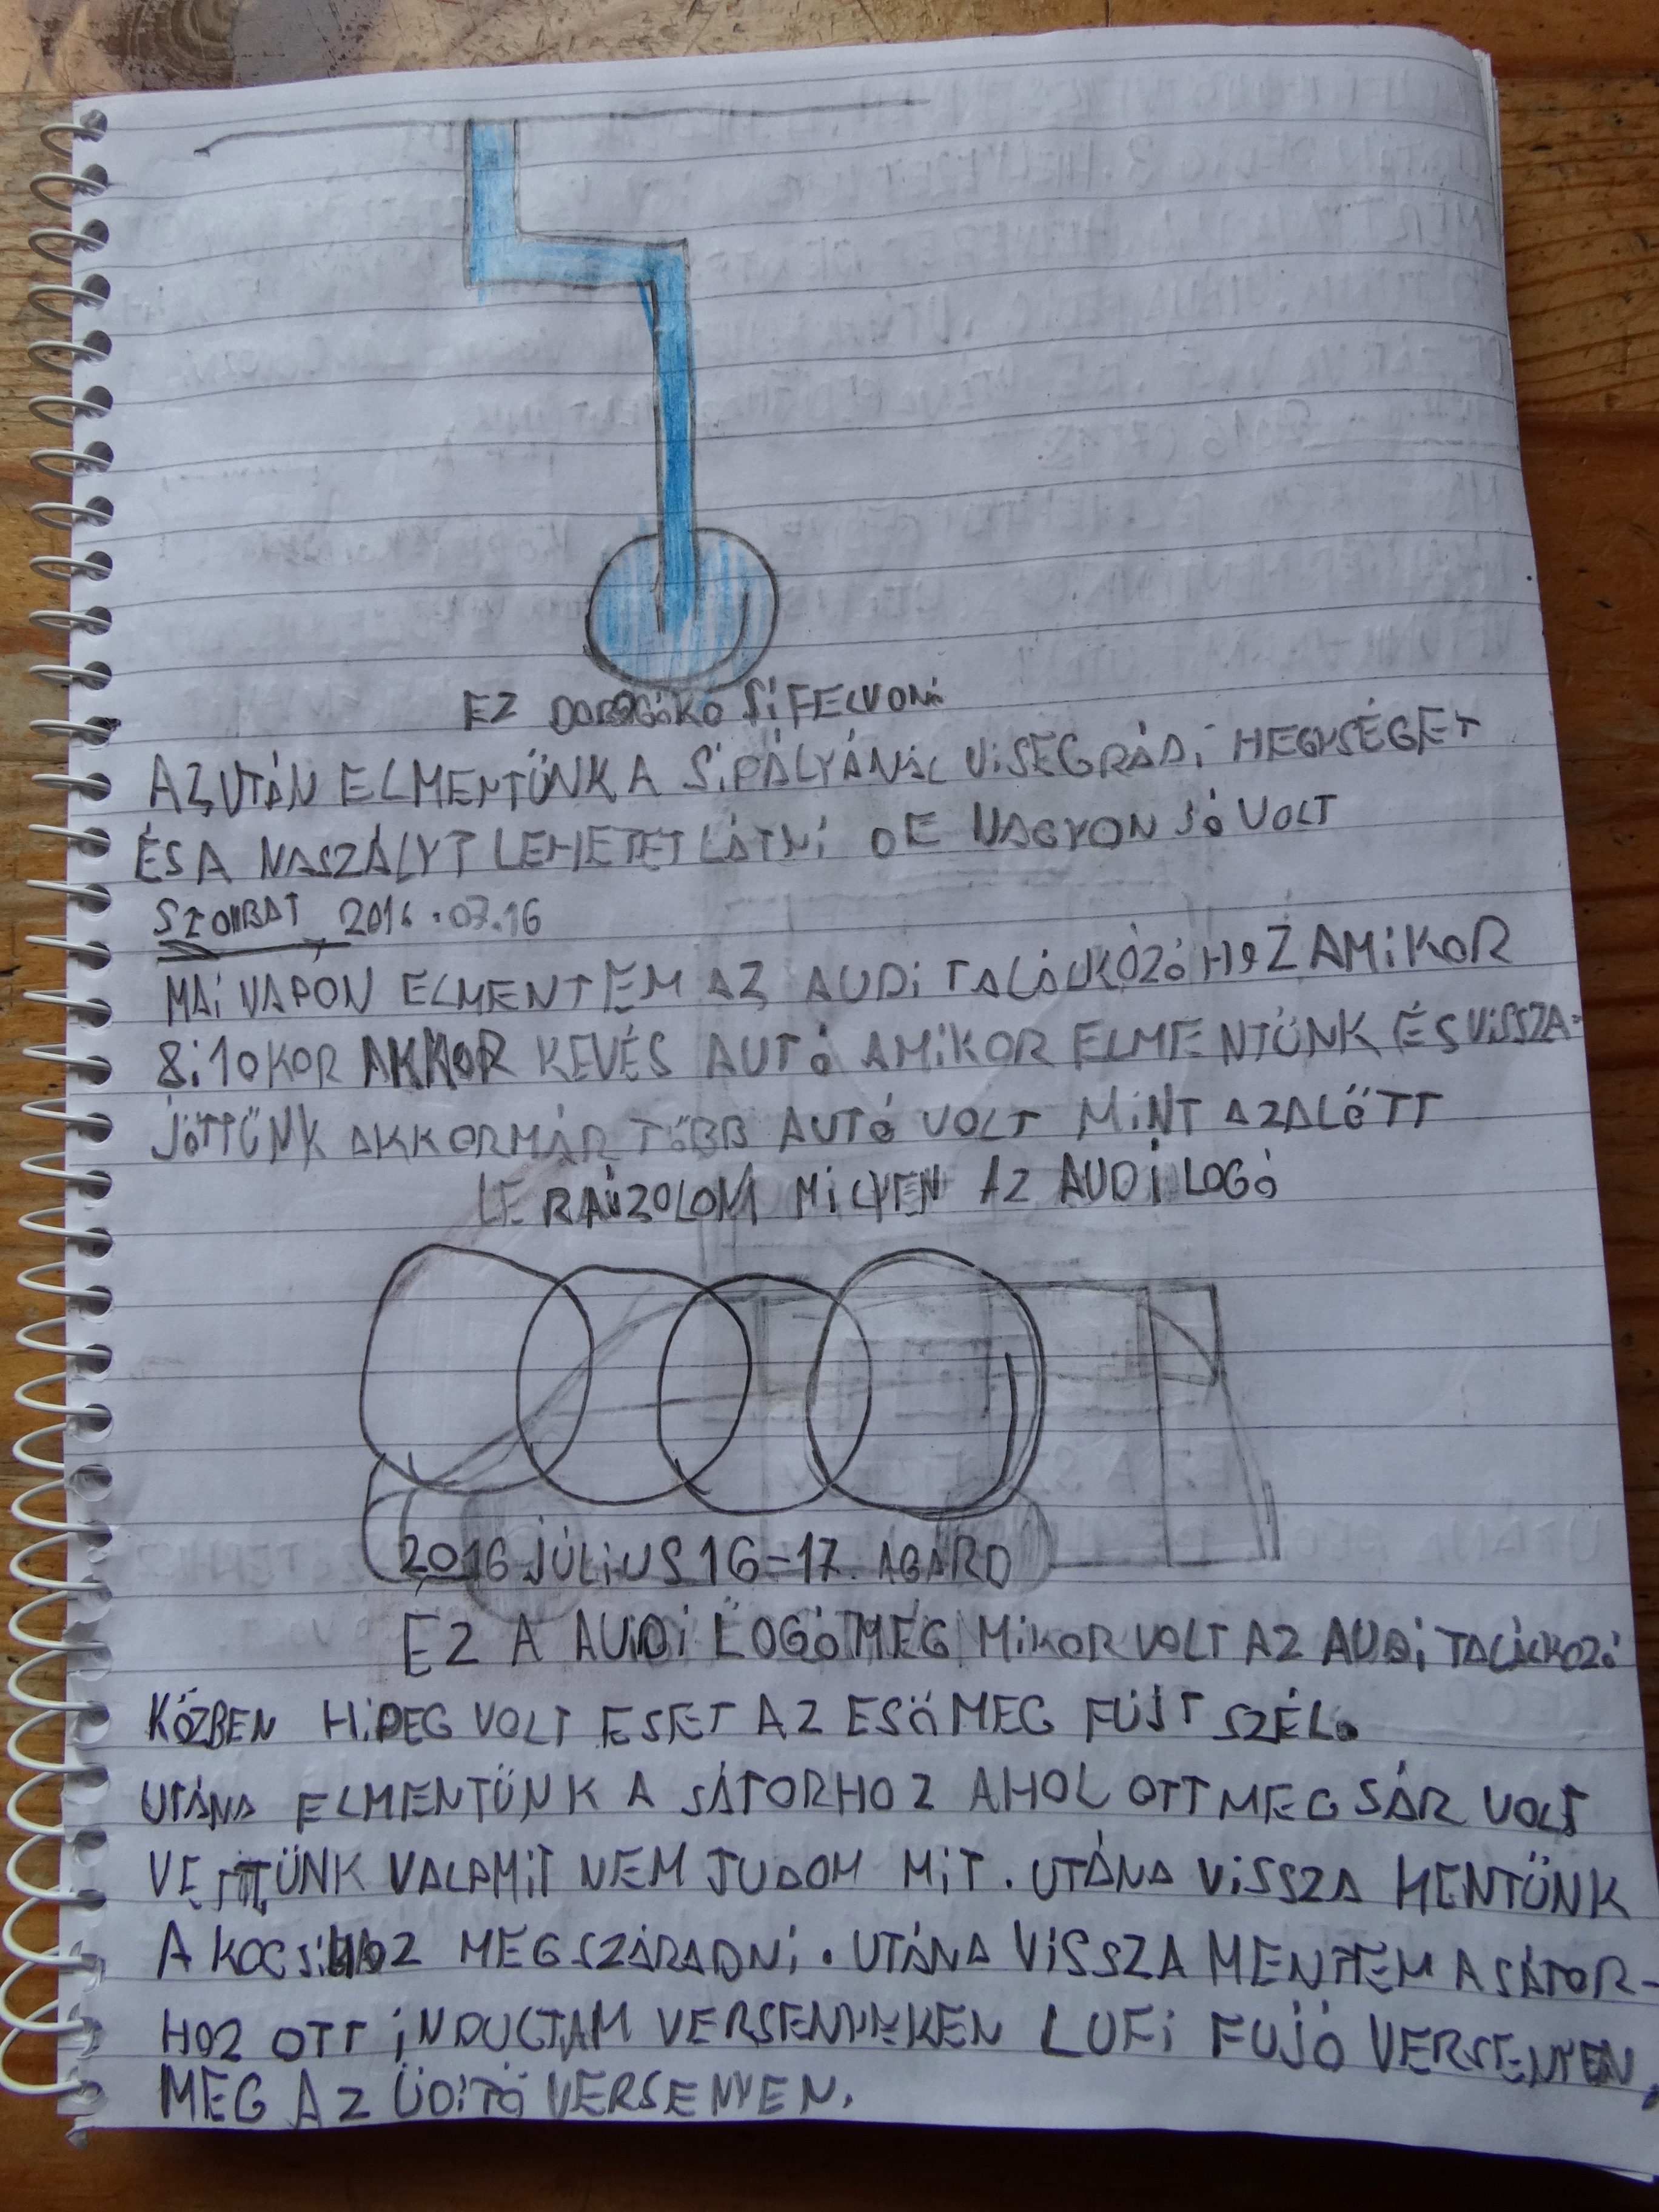 EZ DOBOGÓKŐ SÍFELVONÓ
AZUTÁN ELMENTÜNK A SÍPÁLYÁNÁL VISEGRÁDI HEGYSÉGET
ÉS A NASZÁLYT LEHETET LÁTNI DE NAGYON JÓ VOLT
SZOMBAT 2016.07.16
MAI NAPON ELMENTEM AZ AUDI TALÁLKOZÓHOZ AMIKOR
8:10KOR AKKOR KEVÉS AUTÓ AMIKOR ELMENTÜNK ÉS VISSZA-
JÖTTÜNK AKKORMÁR TÖBB AUTÓ VOLT MINT AZALŐTT
LE RAJZOLOM MILYEN AZ AUDI LOGÓ
2016 JÚLIUS 16-17. AGARD
EZ A AUDI LOGÓ MEG MIKOR VOLT AZ AUDI TALÁLKOZÓ
KÖZBEN HIDEG VOLT ESET AZ ESŐ MEG FÚJT SZÉL.
UTÁNA ELMENTÜNK A SÁTORHOZ AHOL OTT MEG SÁR VOLT
VETTÜNK VALAMIT NEM TUDOM MIT. UTÁNA VISSZA MENTÜNK
A KOCSIHOZ MEGSZÁRADNI. UTÁNA VISSZA MENTEM A SÁTOR-
HOZ OTT INDULTAM VERSENYEKEN LUFI FUJÓ VERSENYEN,
MEG AZ ÜDITŐ VERSENYEN.